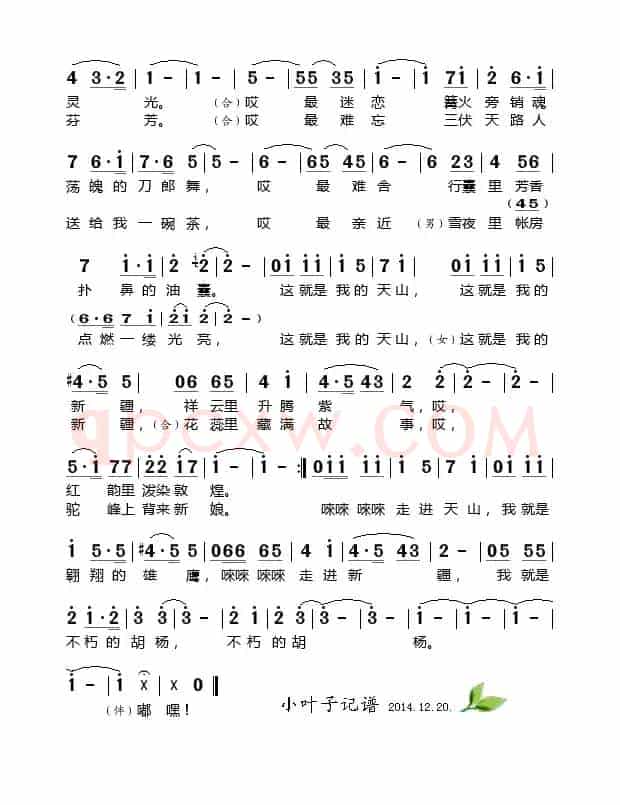 4 3·2 | 1 - | 1 - | 5 - | 55 35 | 1 - | 1 - | 71 | 2 6·1 |
灵 光。 (合)哎 最 迷 恋 篝火 旁 销魂
芬 芳。 (合)哎 最 难 忘 三伏 天 路人
7 6·1 | 7·6 5 | 5 - | 6 - | 65 45 | 6 - | 6 23 | 4 56 |
荡 魄 的 刀 郎 舞, 哎 最 难 舍 行囊 里 芳香
(45)
送 给 我 一 碗 茶, 哎 最 亲 近 (男)雪夜 里 帐房
7 1·1 | 2 2 | 2 - | 01 11 | 1 5 | 7 | 01 11 | 1 5 |
扑 鼻 的 油 囊。 这 就是 我 的 天山, 这 就是 我 的
(6·6 7 1 | 21 2 | 2 -)
点 燃 一 缕 光 亮, 这 就是 我 的 天山,(女)这 就是 我 的
#4·5 5 | 06 65 | 4 1 | 4·5 43 | 2 2 | 2 - | 2 - |
新 疆, 祥 云里 升 腾 紫 气, 哎,
新 疆,(合)花 蕊里 藏 满 故 事, 哎,
qpcxw.COM
5·1 77 | 22 17 | 1 - | 1 - :‖ 01 1 | 1 1 | 1 5 | 7 01 |
红 韵里 泼染 敦 煌。
驼 峰上 背来 新 娘。 唻唻 唻唻 走 进 天 山, 我 就是
1 5·5 | #4·5 5 | 066 65 | 4 1 | 4·5 43 | 2 - | 05 55 |
翱 翔 的 雄 鹰, 唻唻 唻唻 走 进 新 疆, 我 就是
2 1·2 | 3 3 | 3 - | 2 1·2 | 3 3 | 1 - | 1 - | 1 - |
不 朽 的 胡 杨, 不 朽 的 胡 杨。
1 - | 1 x | x 0 ‖
(伴)嘟 嘿!
小叶子记谱 2014.12.20.